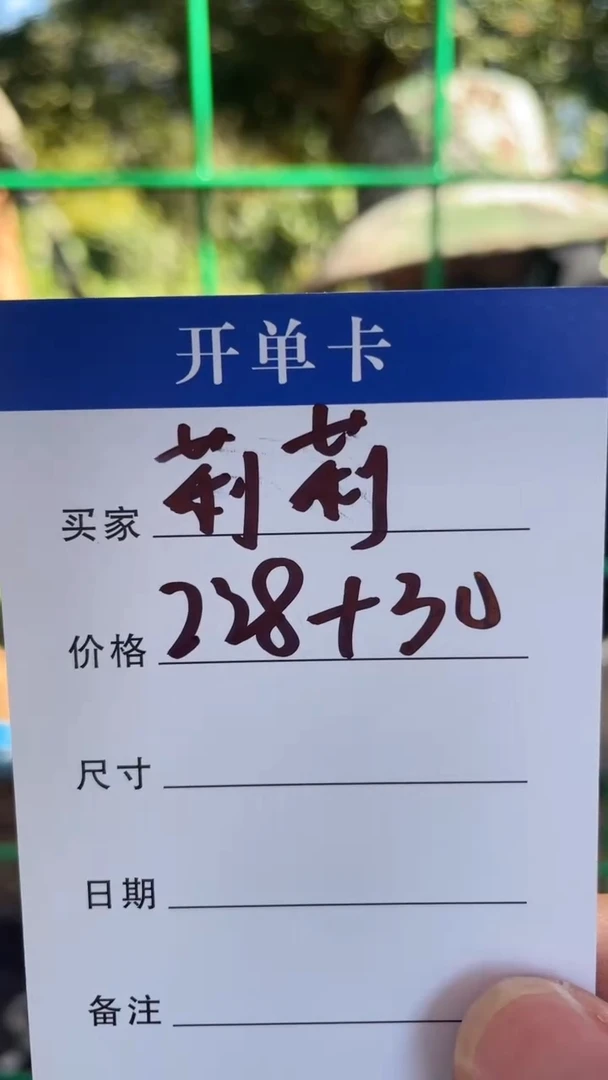 开单卡
买家 莉莉
价格 228+30
尺寸
日期
备注